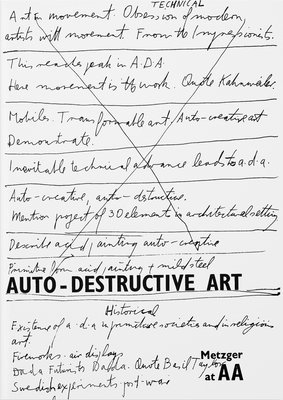 TECHNICAL
Art in movement. Obsession of modern
artists with movement. From the Impressionists.
This reaches peak in A.D.A
Here movement is the work. Quote Kahnweiler.
Mobiles. Transformable art, Auto-creative art
Demonstrate.
Inevitable technical advance leads to a.d.a.
Auto-creative, auto-destructive.
Mention project of 3D element in architectural setting
Describe acid painting auto-creative
Primitive form acid painting + mild steel
AUTO-DESTRUCTIVE ART
Historical
Existence of a.d.a in primitive societies and in religious
art.
Fireworks. air displays
Dada Futurists Dada. Quote Basil Taylor
Swedish experiments post-war
Metzger
at AA